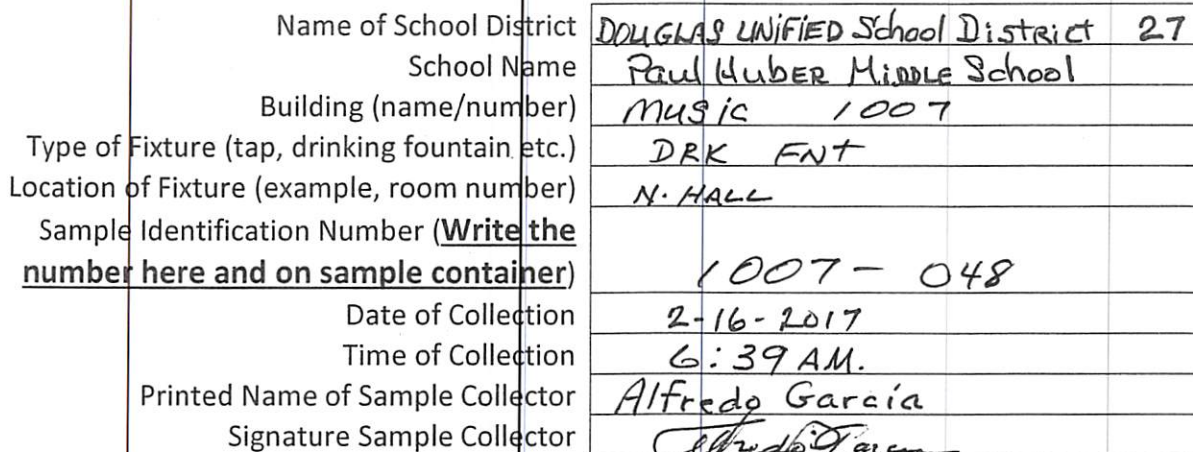 Name of School District DOUGLAS UNIFIED School District 27
School Name Paul Huber Middle School
Building (name/number) Music 1007
Type of Fixture (tap, drinking fountain etc.) DRK FNT
Location of Fixture (example, room number) N. HALL
Sample Identification Number (Write the
number here and on sample container) 1007 - 048
Date of Collection 2-16-2017
Time of Collection 6:39 AM.
Printed Name of Sample Collector Alfredo Garcia
Signature Sample Collector Alfredo Garcia